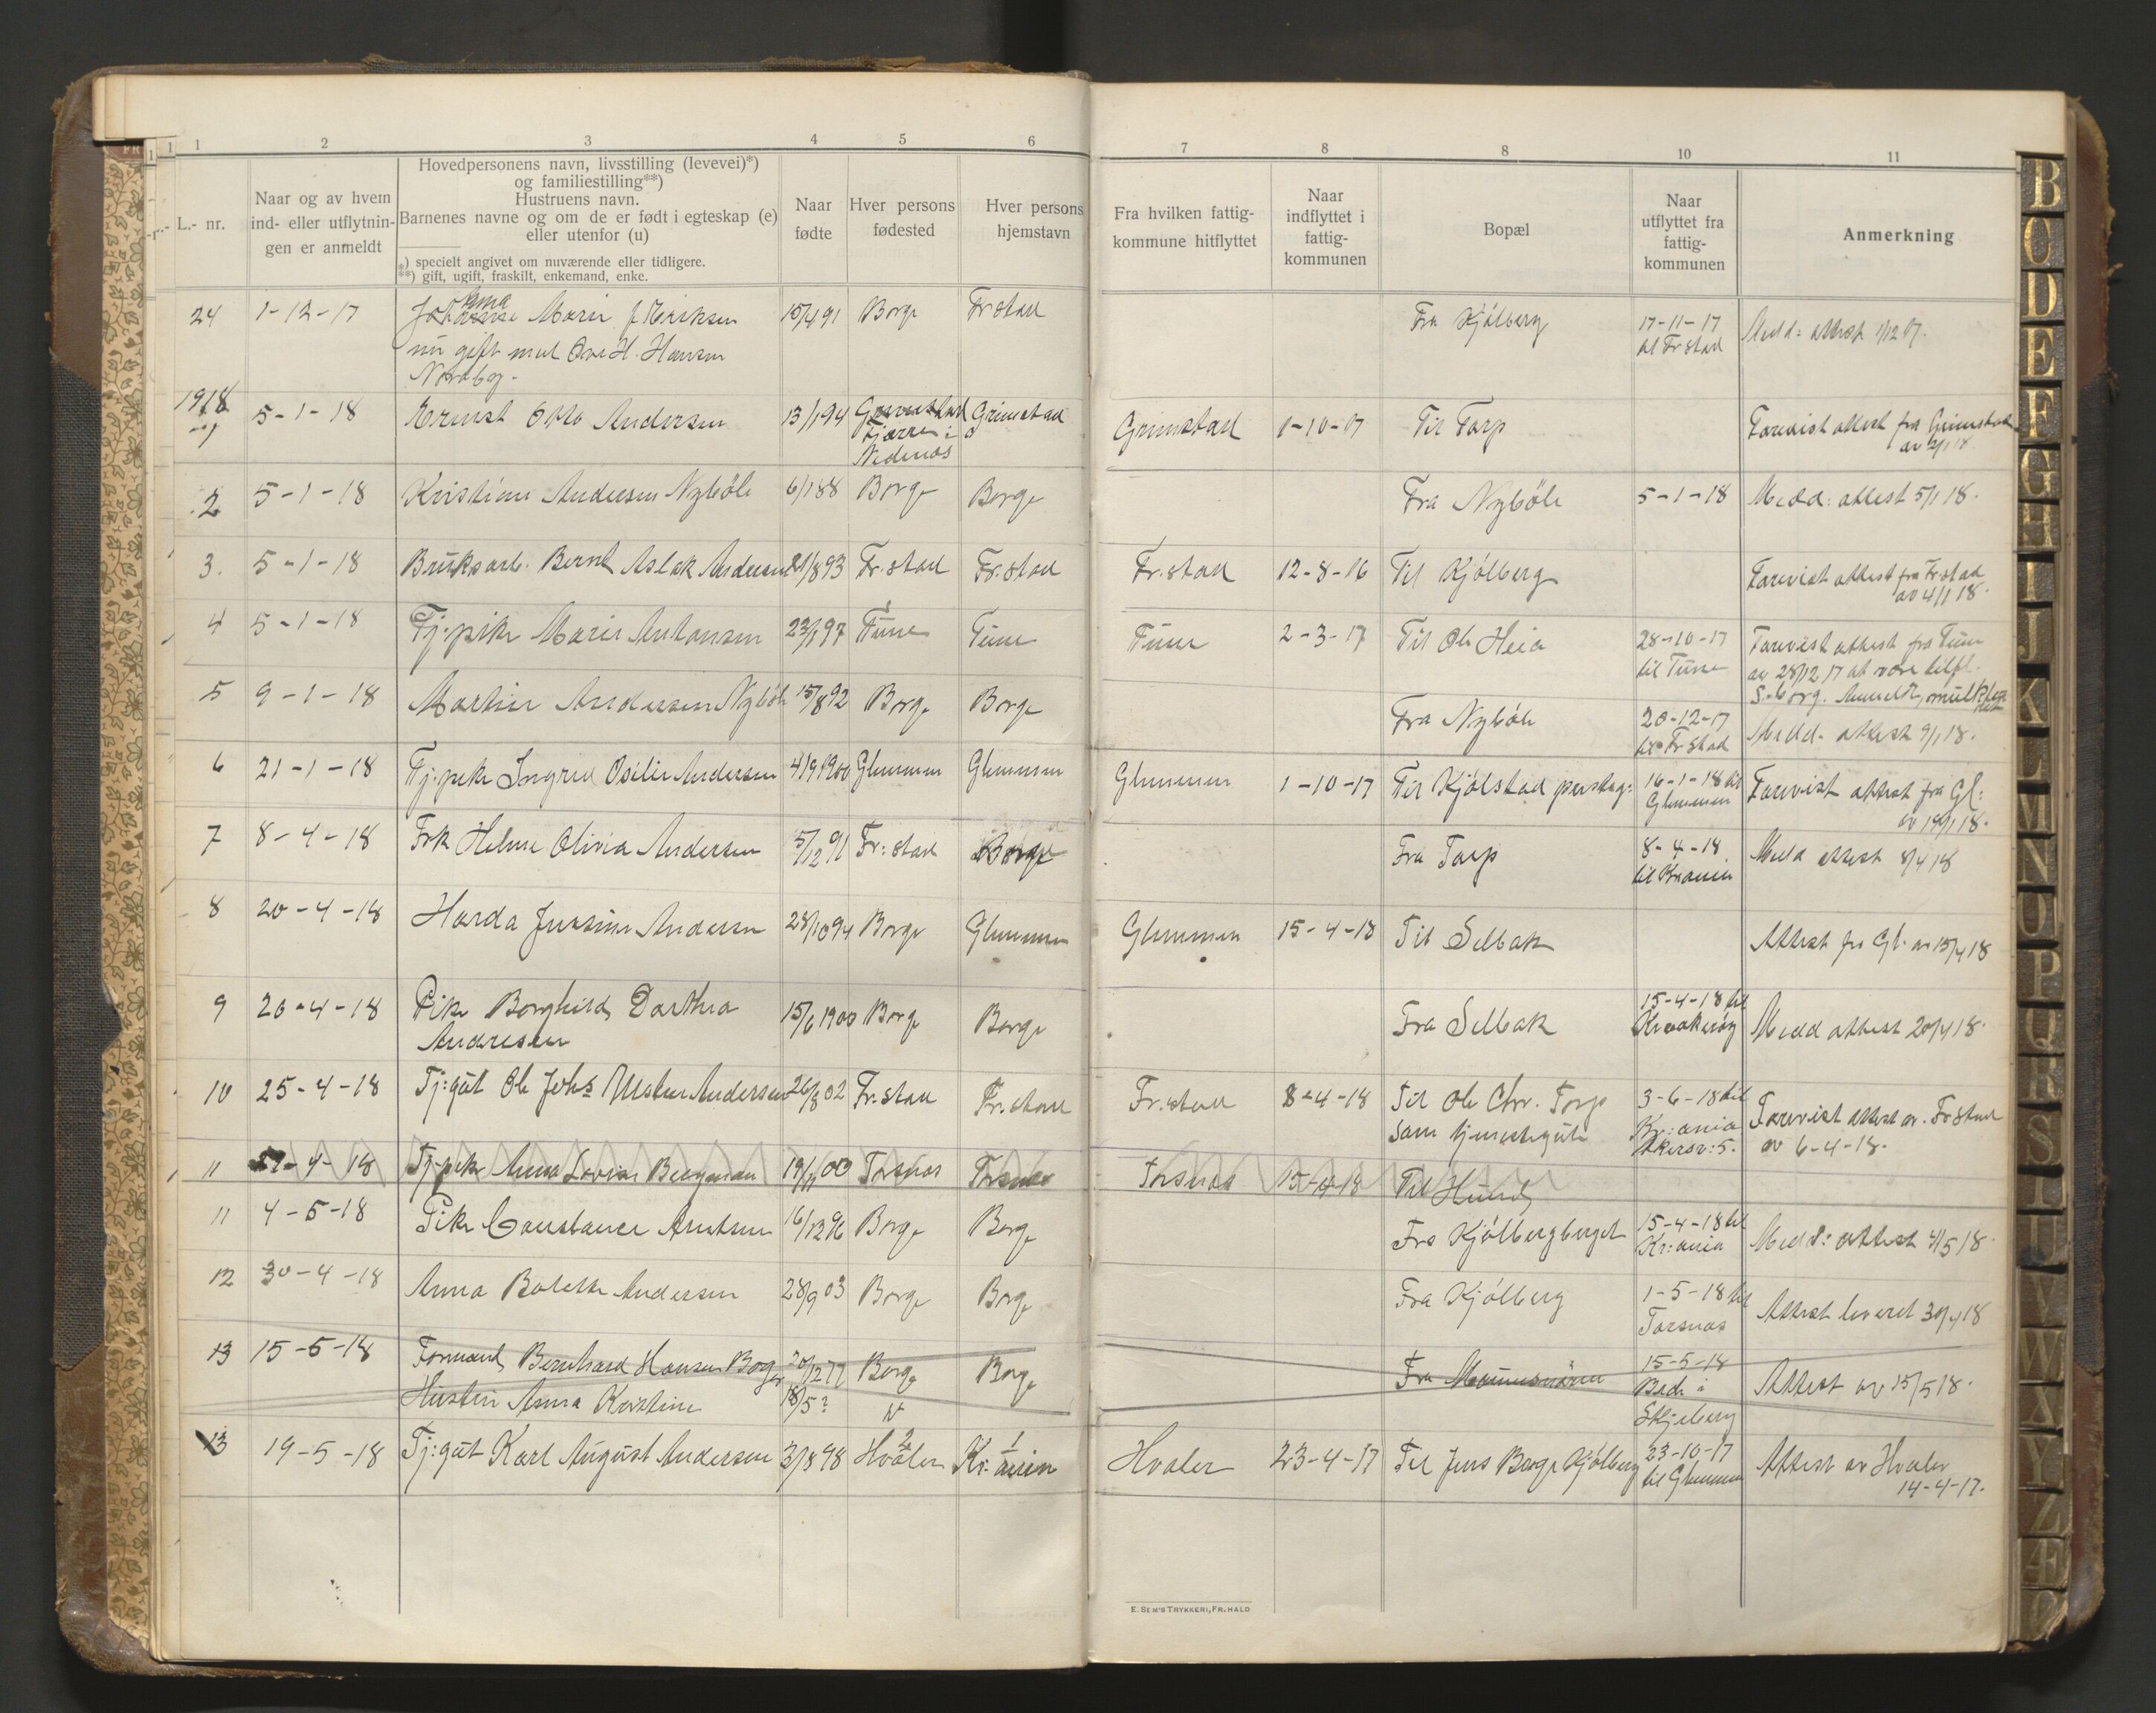 1 2 3 4 5 6 7 8 8 10 11
L.- nr.
Naar og av hvem
ind- eller utflytnin-
gen er anmeldt
Hovedpersonens navn, livsstilling (levevei)*)
og familiestilling**)
Hustruens navn.
Barnenes navne og om de er født i egteskap (e)
eller utenfor (u)
*) specielt angivet om nuværende eller tidligere.
**) gift, ugift, fraskilt, enkemand, enke.
Naar
fødte
Hver persons
fødested
Hver persons
hjemstavn
Fra hvilken fattig-
kommune hitflyttet
Naar
indflyttet i
fattig-
kommunen
Bopæl
Naar
utflyttet fra
fattig-
kommunen
Anmerkning
24 1-12-17 Marie 15/4 91 Borge Fr stad Fra Kjölberg 17-11-17 Medd: attest 1/12 17.
nu gift med Ove H. Hansen til Fr stad
Nordbg.
1918
1 5-1-18 Ernst Otto Andersen 13/1 94 Grimstad Grimstad 1-10-17 Til Torp Forevist attest fra Grimstad
Fjære i av 2/1 18
Nedenæs
2 5-1-18 Kristian Andersen Nyböle 6/1 88 Borge Borge Fra Nyböle 5-1-18 Medd: attest 5/1 18.
3. 5-1-18 Bruksarb. Bernt Aslak Andersen 21/8 93 Fr.stad Fr.stad Fr.stad 12-8-16 Til Kjölberg Forevist attest fra Fr stad
av 4/1 18.
4 5-1-18 Tj:pike Marie Antonsen 23/1 97 Tune Tune Tune 2-3-17 Til Ole Heia 28-10-17 Forevist attest fra Tune
til Tune av 28/12 17 at være tilfl.
S.borg.
5 9-1-18 Martin Andersen Nyböle 15/8 92 Borge Borge Fra Nyböle 20-12-17 Medd. attest 9/1 18.
til Fr stad
6 21-1-18 Tj:pike Ingrid Osilie Andersen 4/9 1900 Glemmen Glemmen Glemmen 1-10-17 Til Kjölstad 16-1-18 til Forevist attest fra Gl:
Glemmen
7 8-4-18 Frk Helene Olivia Andersen 5/12 91 Fr: stad Borge Fra Torp 8-4-18 Medd attest 8/4 18
til Kr.ania
8 20-4-18 Harda Andersen 28/10 94 Borge Glemmen Glemmen 15-4-18 Til Selbak Attest fra Gl. av 15/4 18
9 20-4-18 Pike Borghild Dorthea 15/6 1900 Borge Borge Fra Selbak 15-4-18 til Medd attest 20/4 18.
Andresen Kraakeröy
10 25-4-18 Tj:gut Ole Johs Andersen 26/8 02 Fr.stad Fr.stad Fr.stad 8-4-18 Til Ole Chr. Torp 3-6-18 til Forevist attest av. Fr stad
som tjenestegut Kr:ania av 6-4-18.
Akersv: 5.
11 Tj-pike Anna Lovise Bergman 19/11 00 Torsnes Torsnes Torsnes 15-4-18 Til Hunds
11 4-5-18 Pike Constance Arntsen 16/12 96 Borge Borge Fra Kjölbergberget 15-4-18 til Medd: attest 4/5 18.
Kr:ania
12 30-4-18 Anna Bolette Andersen 28/9 03 Borge Borge Fra Kjölberg 1-5-18 til Attest leveret 30/4 18
Torsnes
13 15-5-18 Formand Bernhard Hansen Borge 20/12 77 Borge Borge Fra 15-5-18 Attest av 15/5 18.
Hustru Anna Kristine 18/5 ? Bede i
Skjeberg
13 19-5-18 Tj:gut Karl August Andersen 3/8 98 Hvaler Kr:ania Hvaler 23-4-17 Til Jens Borge Kjölberg 23-10-17 Attest av Hvaler
2 1 til Glemmen 14-4-17.
E. SEM'S TRYKKERI, FR.HALD
B O D E F G H I J K L M N O P Q R S T V W X Y Z Æ Ø